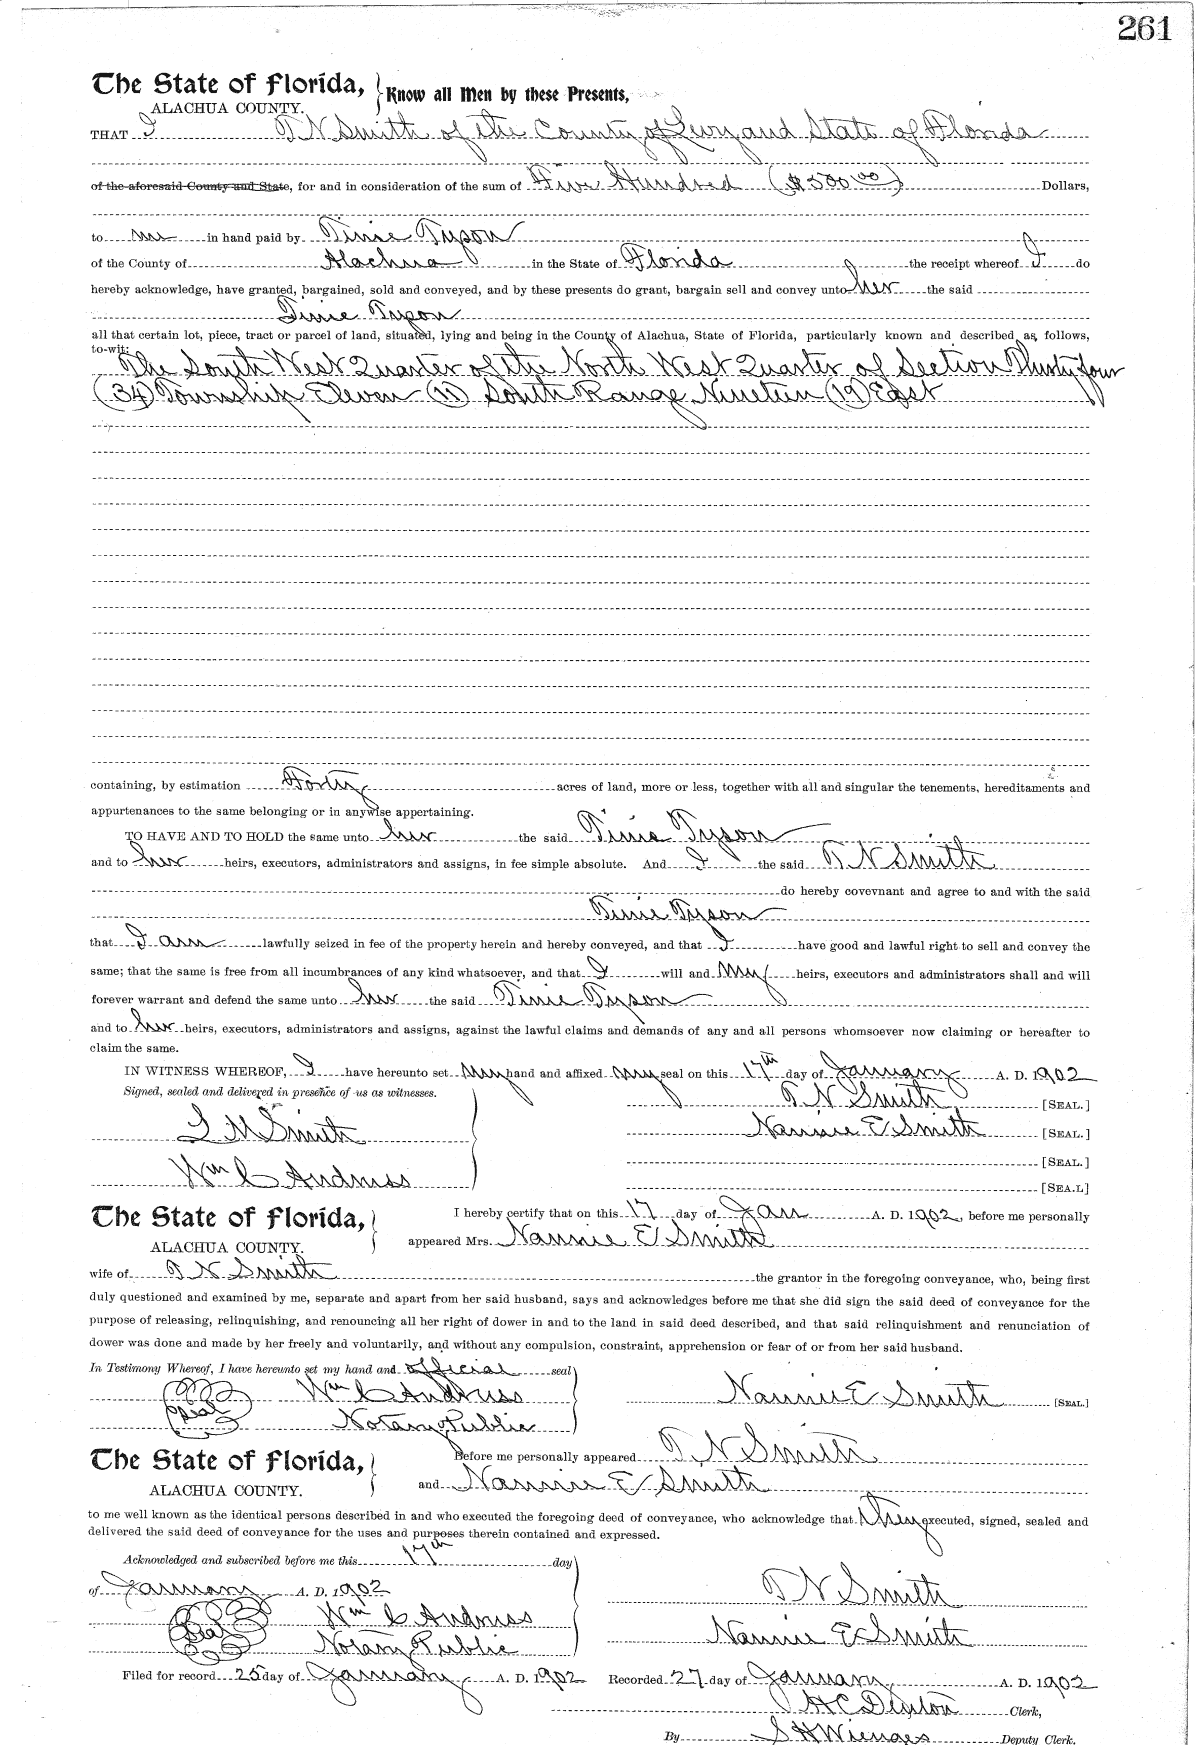 261
The State of Florida,
ALACHUA COUNTY.
Know all Men by these Presents,
THAT I T N Smith of the County of Levy and State of Florida
of the aforesaid County and State, for and in consideration of the sum of Five Hundred ($500.00) Dollars,
to me in hand paid by Tinie Tyson
of the County of Alachua in the State of Florida the receipt whereof I do
hereby acknowledge, have granted, bargained, sold and conveyed, and by these presents do grant, bargain sell and convey unto her the said
Tinie Tyson
all that certain lot, piece, tract or parcel of land, situated, lying and being in the County of Alachua, State of Florida, particularly known and described as follows,
to-wit:
The South West Quarter of the North West Quarter of Section Thirty four
(34) Township Eleven (11) South Range Nineteen (19) East
containing, by estimation Forty acres of land, more or less, together with all and singular the tenements, hereditaments and
appurtenances to the same belonging or in anywise appertaining.
TO HAVE AND TO HOLD the same unto her the said Tinie Tyson
and to her heirs, executors, administrators and assigns, in fee simple absolute. And I the said T N Smith
do hereby covevnant and agree to and with the said
Tinie Tyson
that I am lawfully seized in fee of the property herein and hereby conveyed, and that I have good and lawful right to sell and convey the
same; that the same is free from all incumbrances of any kind whatsoever, and that I will and my heirs, executors and administrators shall and will
forever warrant and defend the same unto her the said Tinie Tyson
and to her heirs, executors, administrators and assigns, against the lawful claims and demands of any and all persons whomsoever now claiming or hereafter to
claim the same.
IN WITNESS WHEREOF, I have hereunto set my hand and affixed my seal on this 17th day of January A. D. 1902
Signed, sealed and delivered in presence of us as witnesses.
T N Smith [SEAL.]
L M Smith
Nannie E Smith [SEAL.]
[SEAL.]
Wm C Andruss
[SEA.L]
The State of Florida,
ALACHUA COUNTY.
I hereby certify that on this 17 day of Jan A. D. 1902, before me personally
appeared Mrs. Nannie E Smith
wife of T N Smith the grantor in the foregoing conveyance, who, being first
duly questioned and examined by me, separate and apart from her said husband, says and acknowledges before me that she did sign the said deed of conveyance for the
purpose of releasing, relinquishing, and renouncing all her right of dower in and to the land in said deed described, and that said relinquishment and renunciation of
dower was done and made by her freely and voluntarily, and without any compulsion, constraint, apprehension or fear of or from her said husband.
In Testimony Whereof, I have hereunto set my hand and official seal
Wm C Andruss
Nannie E Smith [SEAL.]
Seal
Notary Public
The State of Florida,
ALACHUA COUNTY.
Before me personally appeared T N Smith
and Nannie E Smith
to me well known as the identical persons described in and who executed the foregoing deed of conveyance, who acknowledge that they executed, signed, sealed and
delivered the said deed of conveyance for the uses and purposes therein contained and expressed.
Acknowledged and subscribed before me this 17th day
of January A. D. 1902
T N Smith
Wm C Andruss
Seal
Nannie E Smith
Notary Public
Filed for record 25 day of January A. D. 1902 Recorded 27 day of January A. D. 1902
H C Denton Clerk,
By S H Wienges Deputy Clerk.